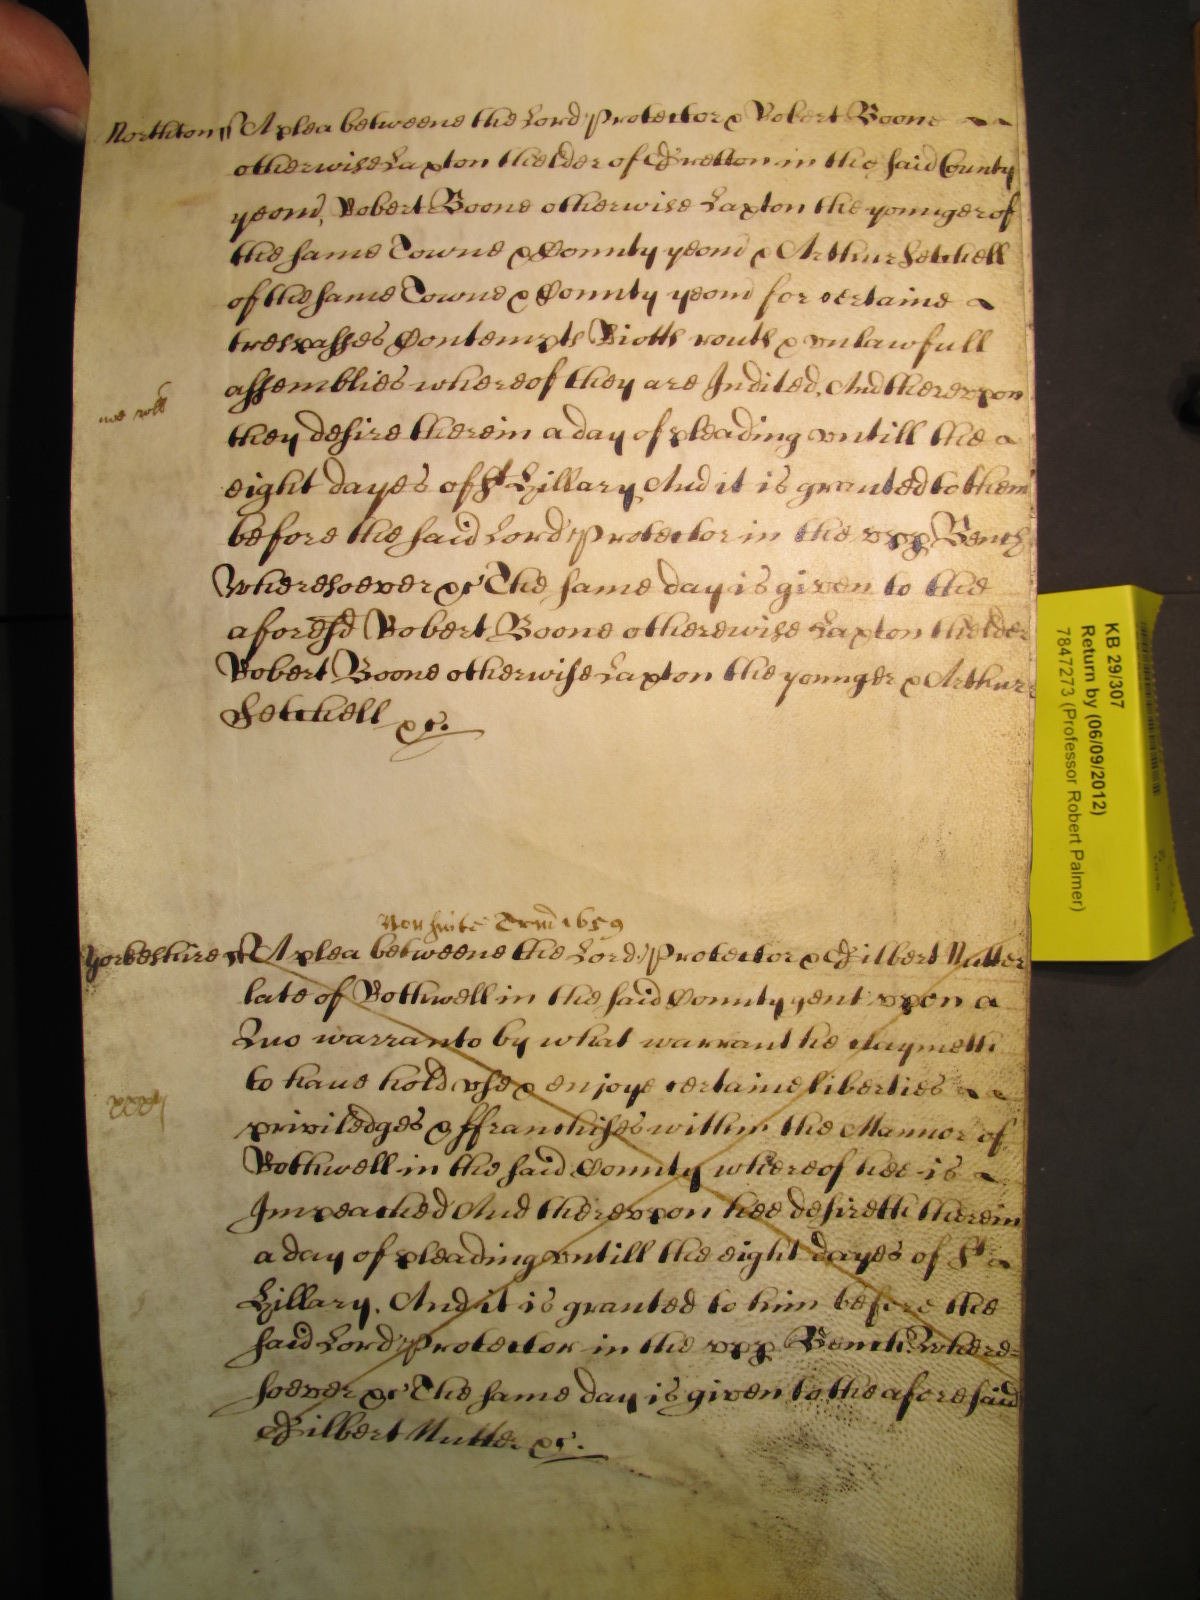 Northton ss A plea betweene the Lord Protector & Robert Boone
otherwise Laxton thelder of Gretton in the said County
yeom, Robert Boone otherwise Laxton the younger of
the same Towne & County yeom & Arthur Setchell
of the same Towne & County yeom for certaine
trespasses Contempts Riotts routs & unlawfull
assemblies whereof they are Indited, And thereupon
they desire therein a day of pleading untill the
eight dayes of St Hillary, And it is granted to them
before the said Lord Protector in the upp Bench
Wheresoever &c The same day is given to the
aforesd Robert Boone otherewise Laxton thelder
Robert Boone otherwise Laxton the younger & Arthur
Setchell &c.
Non suite Trin 1659
Yorkeshire ss A plea betweene the Lord Protector & Gilbert Nutter
late of Rothwell in the said County gent upon a
Quo warranto by what warrant he claymeth
to haue hold use & enjoye certaine liberties
priviledges & ffranchises within the Mannor of
Rothwell in the said County whereof hee is
Impeached And thereupon hee desireth therein
a day of pleading untill the eight dayes of St
Hillary. And it is granted to him before the
said Lord Protector in the upp Bench Where=
soever &c The same day is given to the aforesaid
Gilbert Nutter &c.
KB 29/307
Return by (06/09/2012)
7847273 (Professor Robert Palmer)